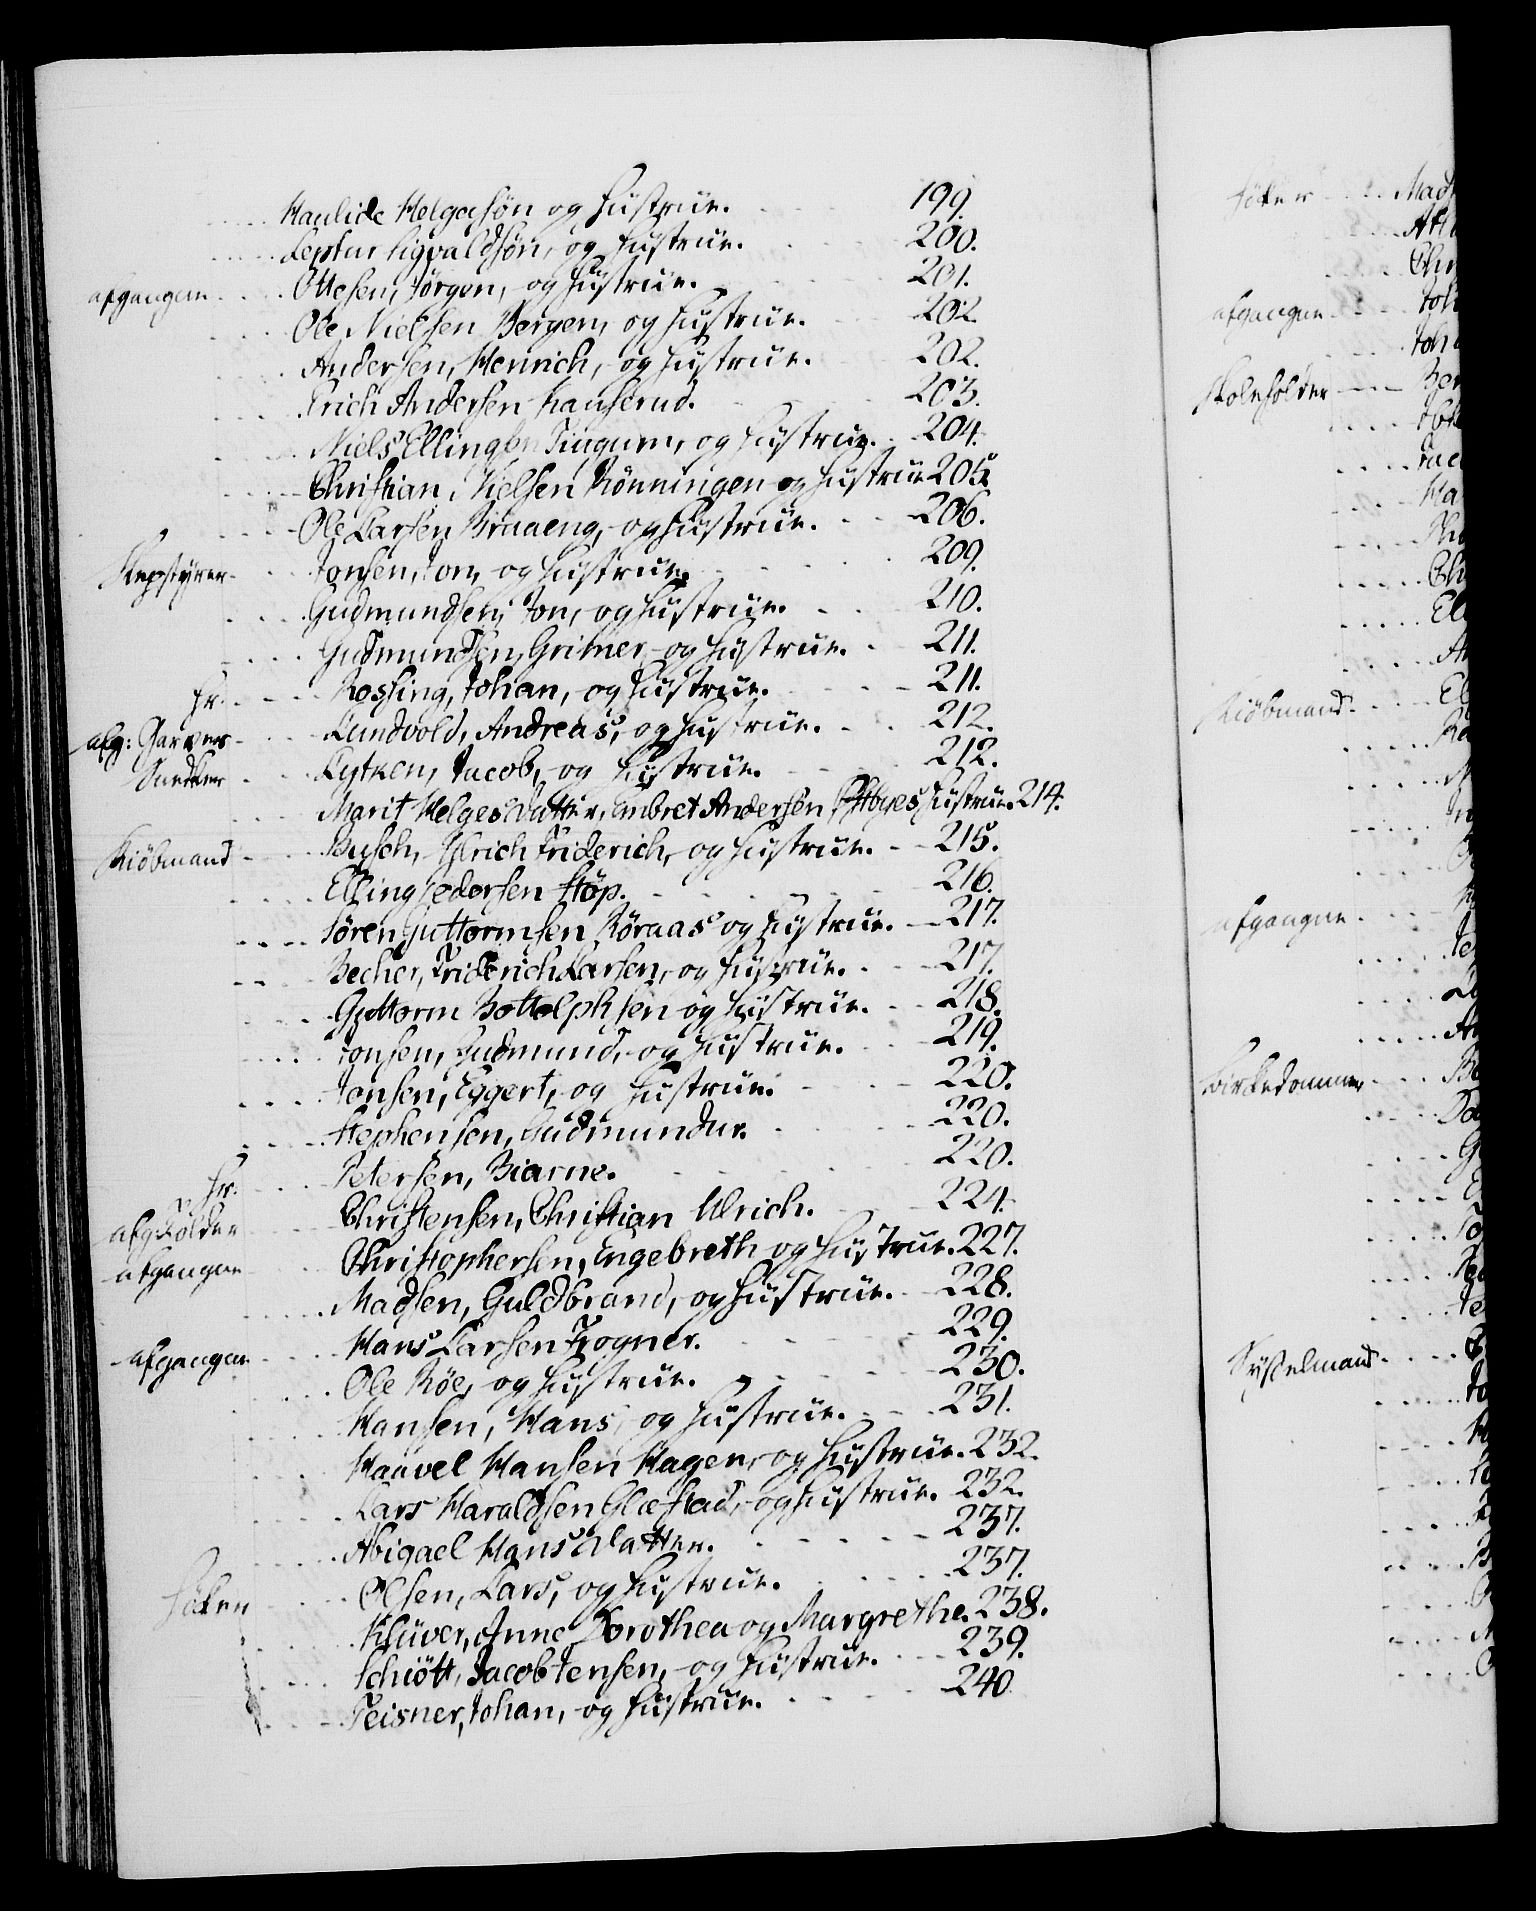 Haulide Helgesøn og Hustrue. 199.
Leptur Sigvaldsøn, og Hustrue. 200.
afgangene Ottesen, Jørgen, og Hustrue. 201.
Ole Nielsen Bergen, og Hustrue. 202.
Andersen, Henrich, og Hustrue. 202.
Erich Andersen Kauserud. 203.
Niels Ellingsen Tingum, og Hustrue. 204.
Christian Nielsen Rønningen og Hustrue 205.
Ole Larsen Braaeng, og Hustrue. 206.
Repstyrer Jonsen, Jon, og Hustrue. 209.
Gudmundsen, Jon, og Hustrue. 210.
Gudmundsen, Grimer, og Hustrue. 211.
Hr. Rosling, Johan, og Hustrue. 211.
afg: Garver Lundvold, Andreas, og Hustrue. 212.
Snedker Lytken, Jacob, og Hustrue. 212.
Marit Helges Datter, Embret Andersen Hustrue 214.
Kiøbmand Busch, Ulrich Friderich, og Hustrue. 215.
Elling Pedersen Støp. 216.
Søren Guttormsen Røraas og Hustrue. 217.
Becher, Friderich Larsen, og Hustrue. 217.
Guttorm Bottolphsen og Hustrue. 218.
Jonsen, Gudmund, og Hustrue. 219.
Jonsen, Eggert, og Hustrue. 220.
Stephensen, Gudmundur. 220.
Hr. Petersen, Biarne. 220.
Christensen, Christian Ulrich. 224.
afgangne Christophersen, Engebreth og Hustrue. 227.
Madsen, Guldbrand, og Hustrue. 228.
Hans Larsen Trogner. 229.
afgangen Ole Røe, og Hustrue. 230.
Hansen, Hans, og Hustrue. 231.
Haavel Hansen Hagen, og Hustrue. 232.
Lars Haraldsen Glæstad, og Hustrue. 232.
Abigael Hans Datter. 237.
Olsen, Lars, og Hustrue. 237.
Klüver, Anne Dorothea og Margrethe. 238.
Schiøtt, Jacob Jensen, og Hustrue. 239.
Teisner, Johan, og Hustrue. 240.
afgangne
Skoleholder
Kiøbmand
afgangne
Birkedommer
Sysselmand